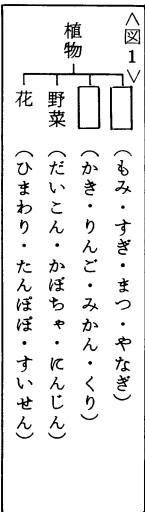 〈図1〉
植物
（もみ・すぎ・まつ・やなぎ）
（かき・りんご・みかん・くり）
野菜（だいこん・かぼちゃ・にんじん）
花（ひまわり・たんぽぽ・すいせん）